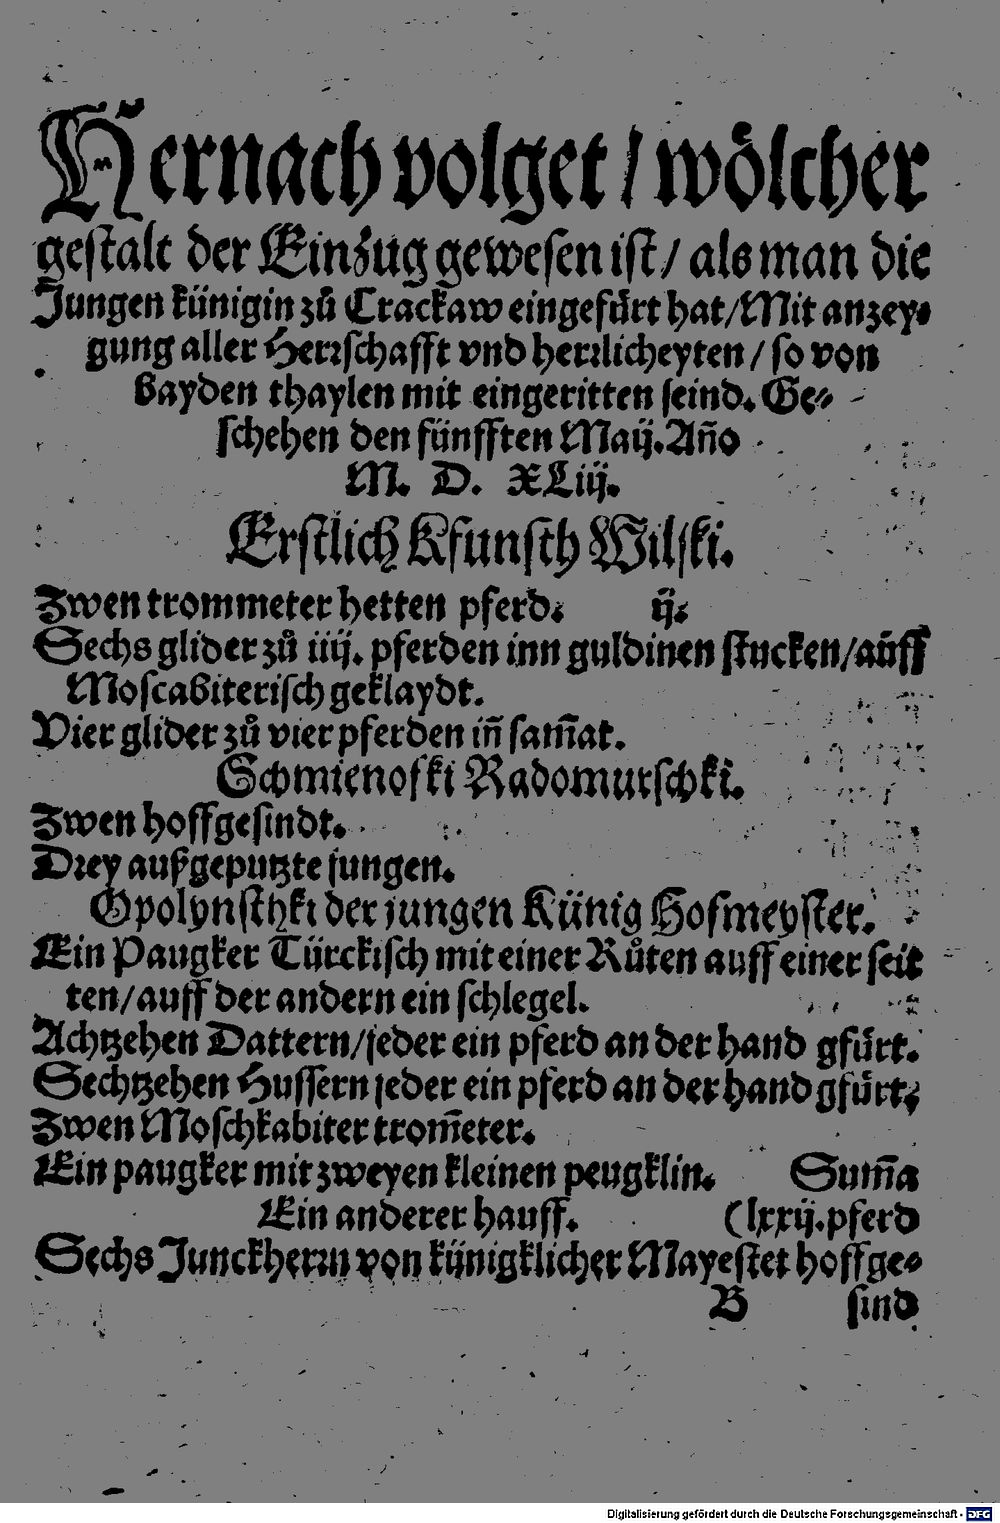 Hernach volget / wölcher
gestalt der Einzug gewesen ist / als man die
Jungen künigin zů Crackaw eingefürt hat / Mit anzey⸗
gung aller Herrschafft vnd herrlicheyten / so von
bayden thaylen mit eingeritten seind. Ge⸗
schehen den fünfften Maij. Año
M. D. XLiij.
Erstlich Kfunsth Wilski.
Zwen trommeter hetten pferd. ij.
Sechs glider zů iiij. pferden inn guldinen stucken / auff
Moscabiterisch geklaydt.
Vier glider zů vier pferden iñ sam̃at.
Schmienofki Radomurschki.
Zwen hoffgesindt.
Drey außgeputzte jungen.
Opolynsthki der jungen Künig Hofmeyster.
Ein Paugker Türckisch mit einer Růten auff einer seit
ten / auff der andern ein schlegel.
Achtzehen Dattern / jeder ein pferd an der hand gfürt.
Sechtzehen Hussern jeder ein pferd an der hand gfürt.
Zwen Moschkabiter trom̃eter.
Ein paugker mit zweyen kleinen peugklin. Sum̃a
Ein anderer hauff. (lxxij. pferd
Sechs Junckherrn von künigklicher Mayestet hoffge⸗
B sind
Digitalisierung gefördert durch die Deutsche Forschungsgemeinschaft - DFG